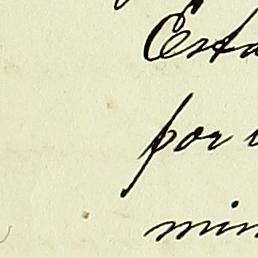 Esta
por
min